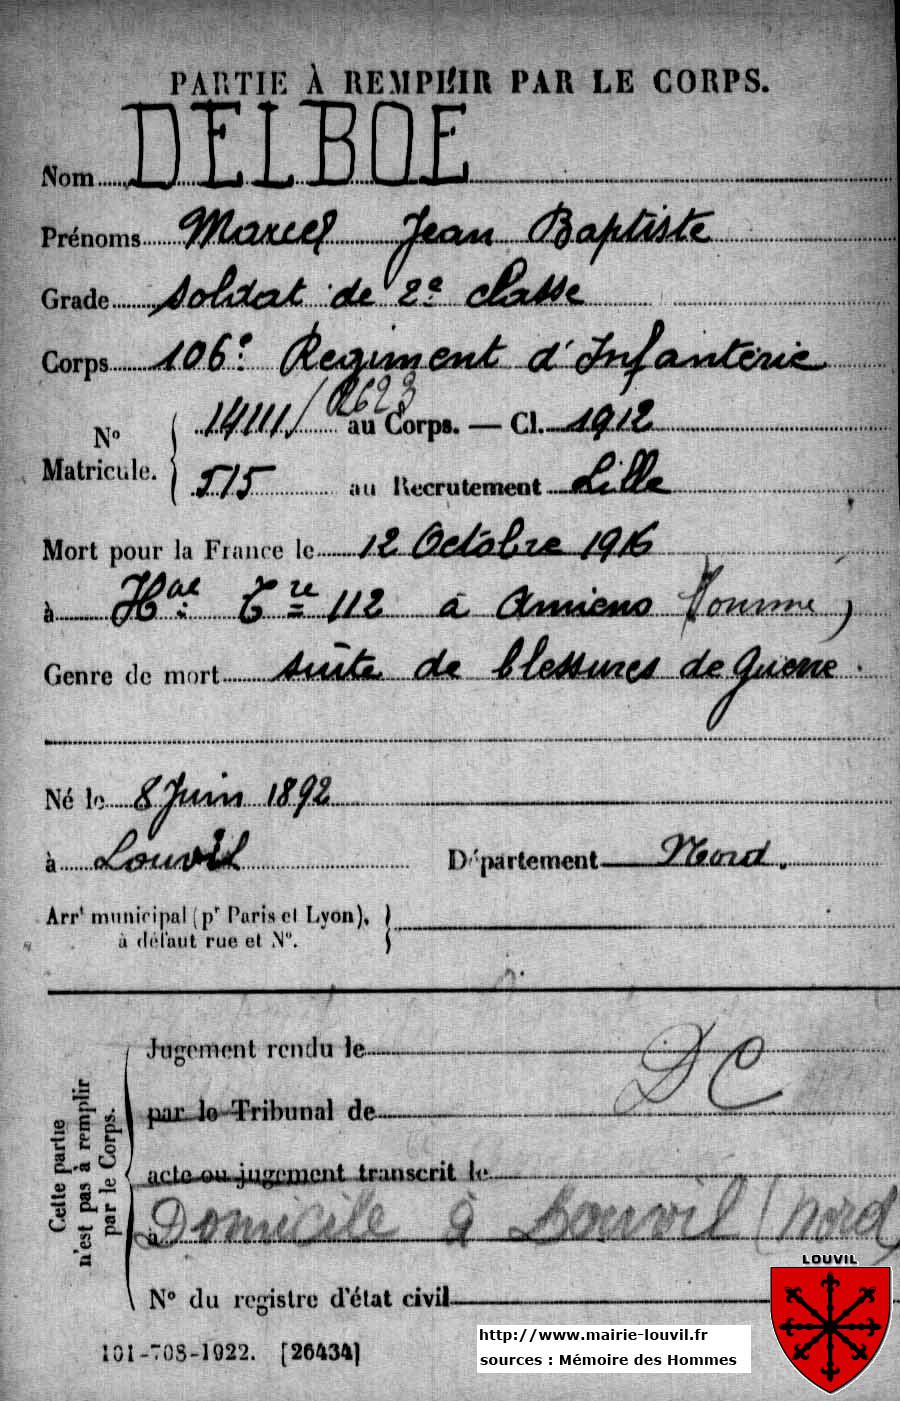 PARTIE À REMPLIR PAR LE CORPS.
Nom DELBOE
Prénoms Marcel Jean Baptiste
Grade soldat de 2e classe
Corps 106e Regiment d'Infanterie
No Matricule. 14111 / 2623 au Corps. — Cl. 1912
515 au Recrutement Lille
Mort pour la France le 12 Octobre 1916
à Hal Tre 112 à Amiens (Somme)
Genre de mort suite de blessures de guerre.
Né le 8 Juin 1892
à Louvil Département Nord.
Arrt municipal (pr Paris et Lyon),
à défaut rue et No.
Cette partie n'est pas à remplir par le Corps.
Jugement rendu le
DC
par le Tribunal de
acte ou jugement transcrit le
à Domicile à Louvil (Nord)
No du registre d'état civil
101-708-1922. [26434]
LOUVIL
http://www.mairie-louvil.fr
sources : Mémoire des Hommes